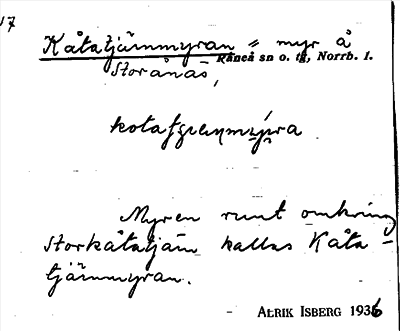 17
Kåtatjärnmyran = myr å
Råneå sn o. tg, Norrb. l.
Storånäs,
Myren runt omkring
Storkåtatjärn kallas Kåta-
tjärnmyran.
ALRIK ISBERG 1936